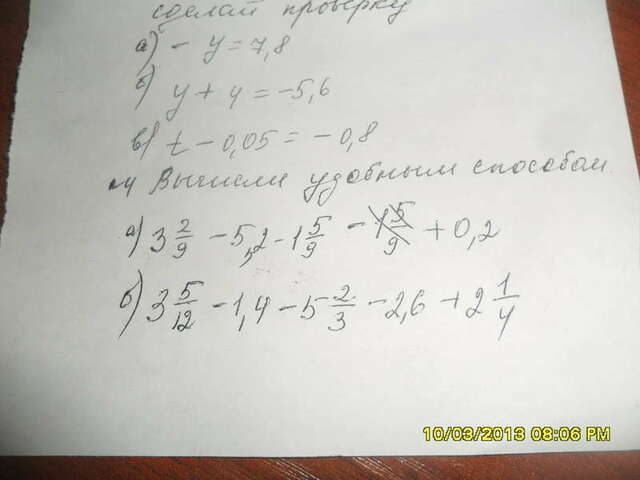 сделай проверку
а) - y = 7,8
б) y + 4 = -5,6
в) t - 0,05 = -0,8
Вычисли удобным способом.
а) 3 2/9 - 5,2 - 1 5/9 - 1 5/9 + 0,2
б) 3 5/12 - 1,4 - 5 2/3 - 2,6 + 2 1/4
10/03/2013 08:06 PM